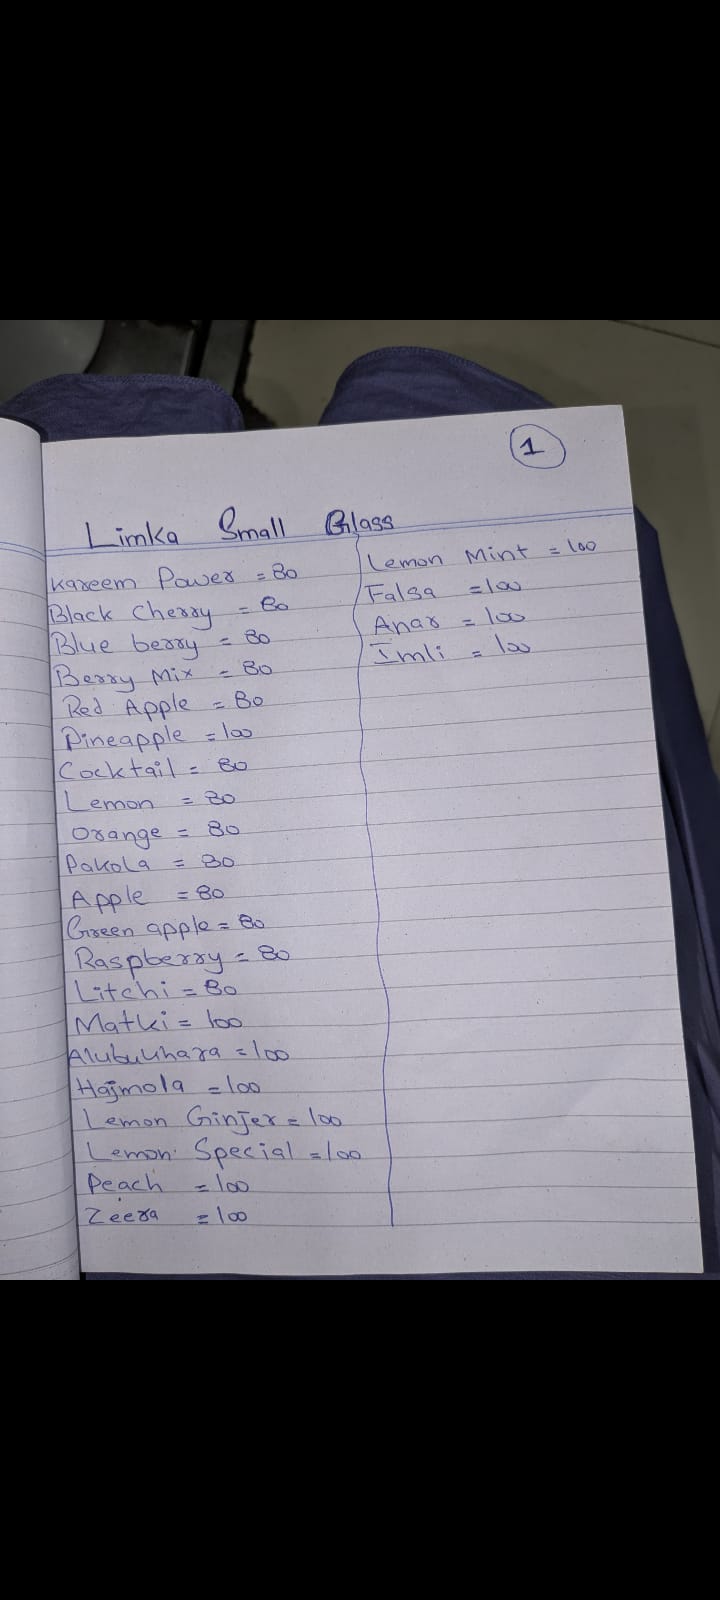 1
Limka Small Glass
Kareem Power = 80
Black Cherry = 80
Blue berry = 80
Berry Mix = 80
Red Apple = 80
Pineapple = 100
Cocktail = 80
Lemon = 80
Orange = 80
Pakola = 80
Apple = 80
Green apple = 80
Raspberry = 80
Litchi = 80
Matki = 100
Alubukhara = 100
Hajmola = 100
Lemon Ginjer = 100
Lemon Special = 100
Peach = 100
Zeera = 100
Lemon Mint = 100
Falsa = 100
Anar = 100
Imli = 100